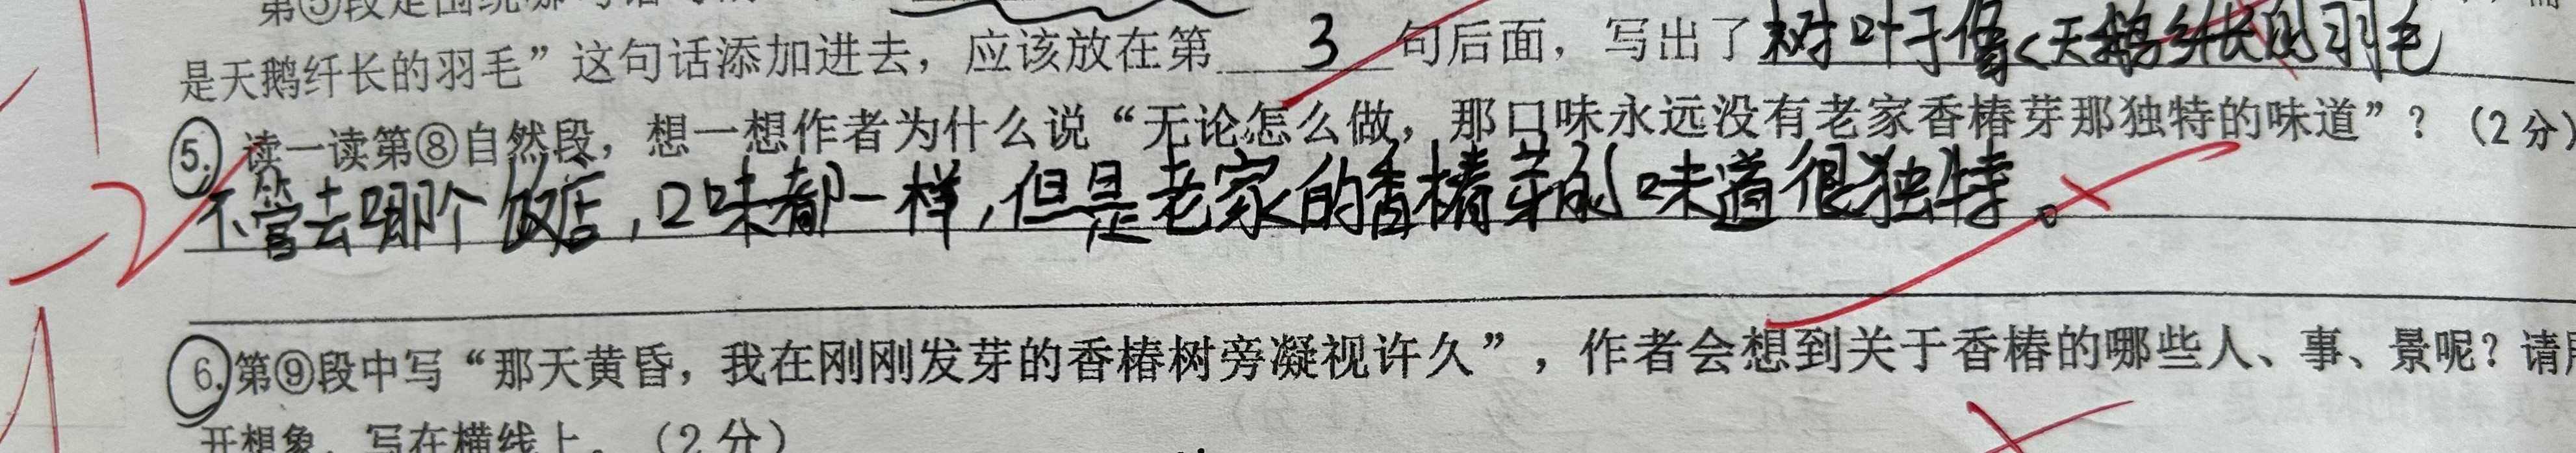 是天鹅纤长的羽毛”这句话添加进去，应该放在第 3 句后面，写出了树叶子像天鹅纤长的羽毛
5. 读一读第⑧自然段，想一想作者为什么说“无论怎么做，那口味永远没有老家香椿芽那独特的味道”？（2分）
不管去哪个饭店，口味都一样，但是老家的香椿芽的味道很独特。
6. 第⑨段中写“那天黄昏，我在刚刚发芽的香椿树旁凝视许久”，作者会想到关于香椿的哪些人、事、景呢？请
开想象，写在横线上。（2分）